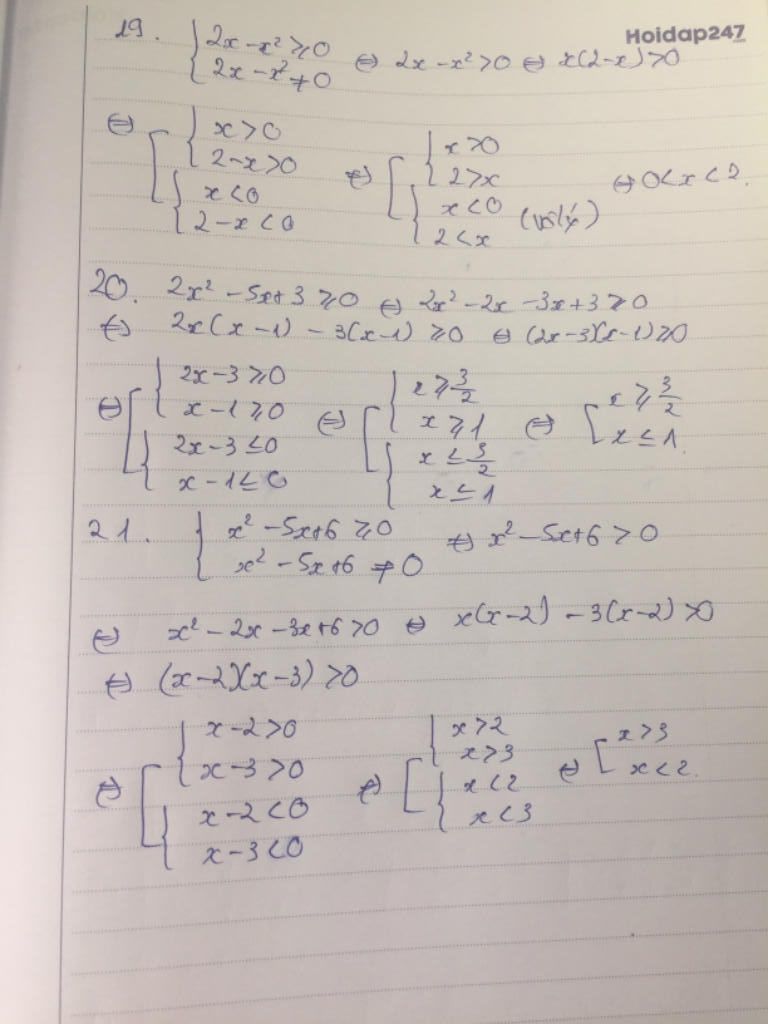 Hoidap247
19. { 2x - x² ≥ 0
2x - x² ≠ 0 ⇔ 2x - x² > 0 ⇔ x(2-x) > 0
⇔ [ { x > 0
2 - x > 0
{ x < 0
2 - x < 0
⇔ [ { x > 0
2 > x
{ x < 0
2 < x (vô lý)
⇔ 0 < x < 2.
20. 2x² - 5x + 3 ≥ 0 ⇔ 2x² - 2x - 3x + 3 ≥ 0
⇔ 2x(x-1) - 3(x-1) ≥ 0 ⇔ (2x-3)(x-1) ≥ 0
⇔ [ { 2x - 3 ≥ 0
x - 1 ≥ 0
{ 2x - 3 ≤ 0
x - 1 ≤ 0
⇔ [ { x ≥ 3/2
x ≥ 1
{ x ≤ 3/2
x ≤ 1
⇔ [ x ≥ 3/2
x ≤ 1.
21. { x² - 5x + 6 ≥ 0
x² - 5x + 6 ≠ 0 ⇔ x² - 5x + 6 > 0
⇔ x² - 2x - 3x + 6 > 0 ⇔ x(x-2) - 3(x-2) > 0
⇔ (x-2)(x-3) > 0
⇔ [ { x - 2 > 0
x - 3 > 0
{ x - 2 < 0
x - 3 < 0
⇔ [ { x > 2
x > 3
{ x < 2
x < 3
⇔ [ x > 3
x < 2.